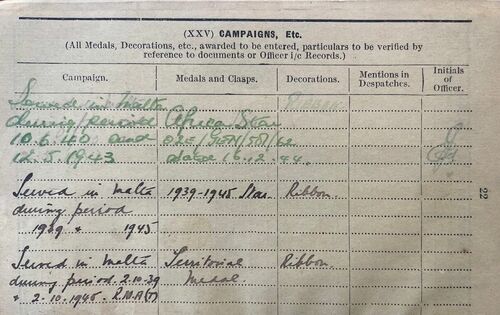 (XXV) CAMPAIGNS, Etc.
(All Medals, Decorations, etc., awarded to be entered, particulars to be verified by
reference to documents or Officer i/c Records.)
Campaign. Medals and Clasps. Decorations. Mentions in Despatches. Initials of Officer.
Served in Malta Africa Star Ribbon
during period
10.6.40 and
12.5.1943 dated 16.12.44.
Served in Malta 1939-1945 Star Ribbon.
during period
1939 & 1945
Served in Malta Territorial Ribbon.
during period 2.10.39 Medal
& 2-10-1945. R.M.A(T)
22